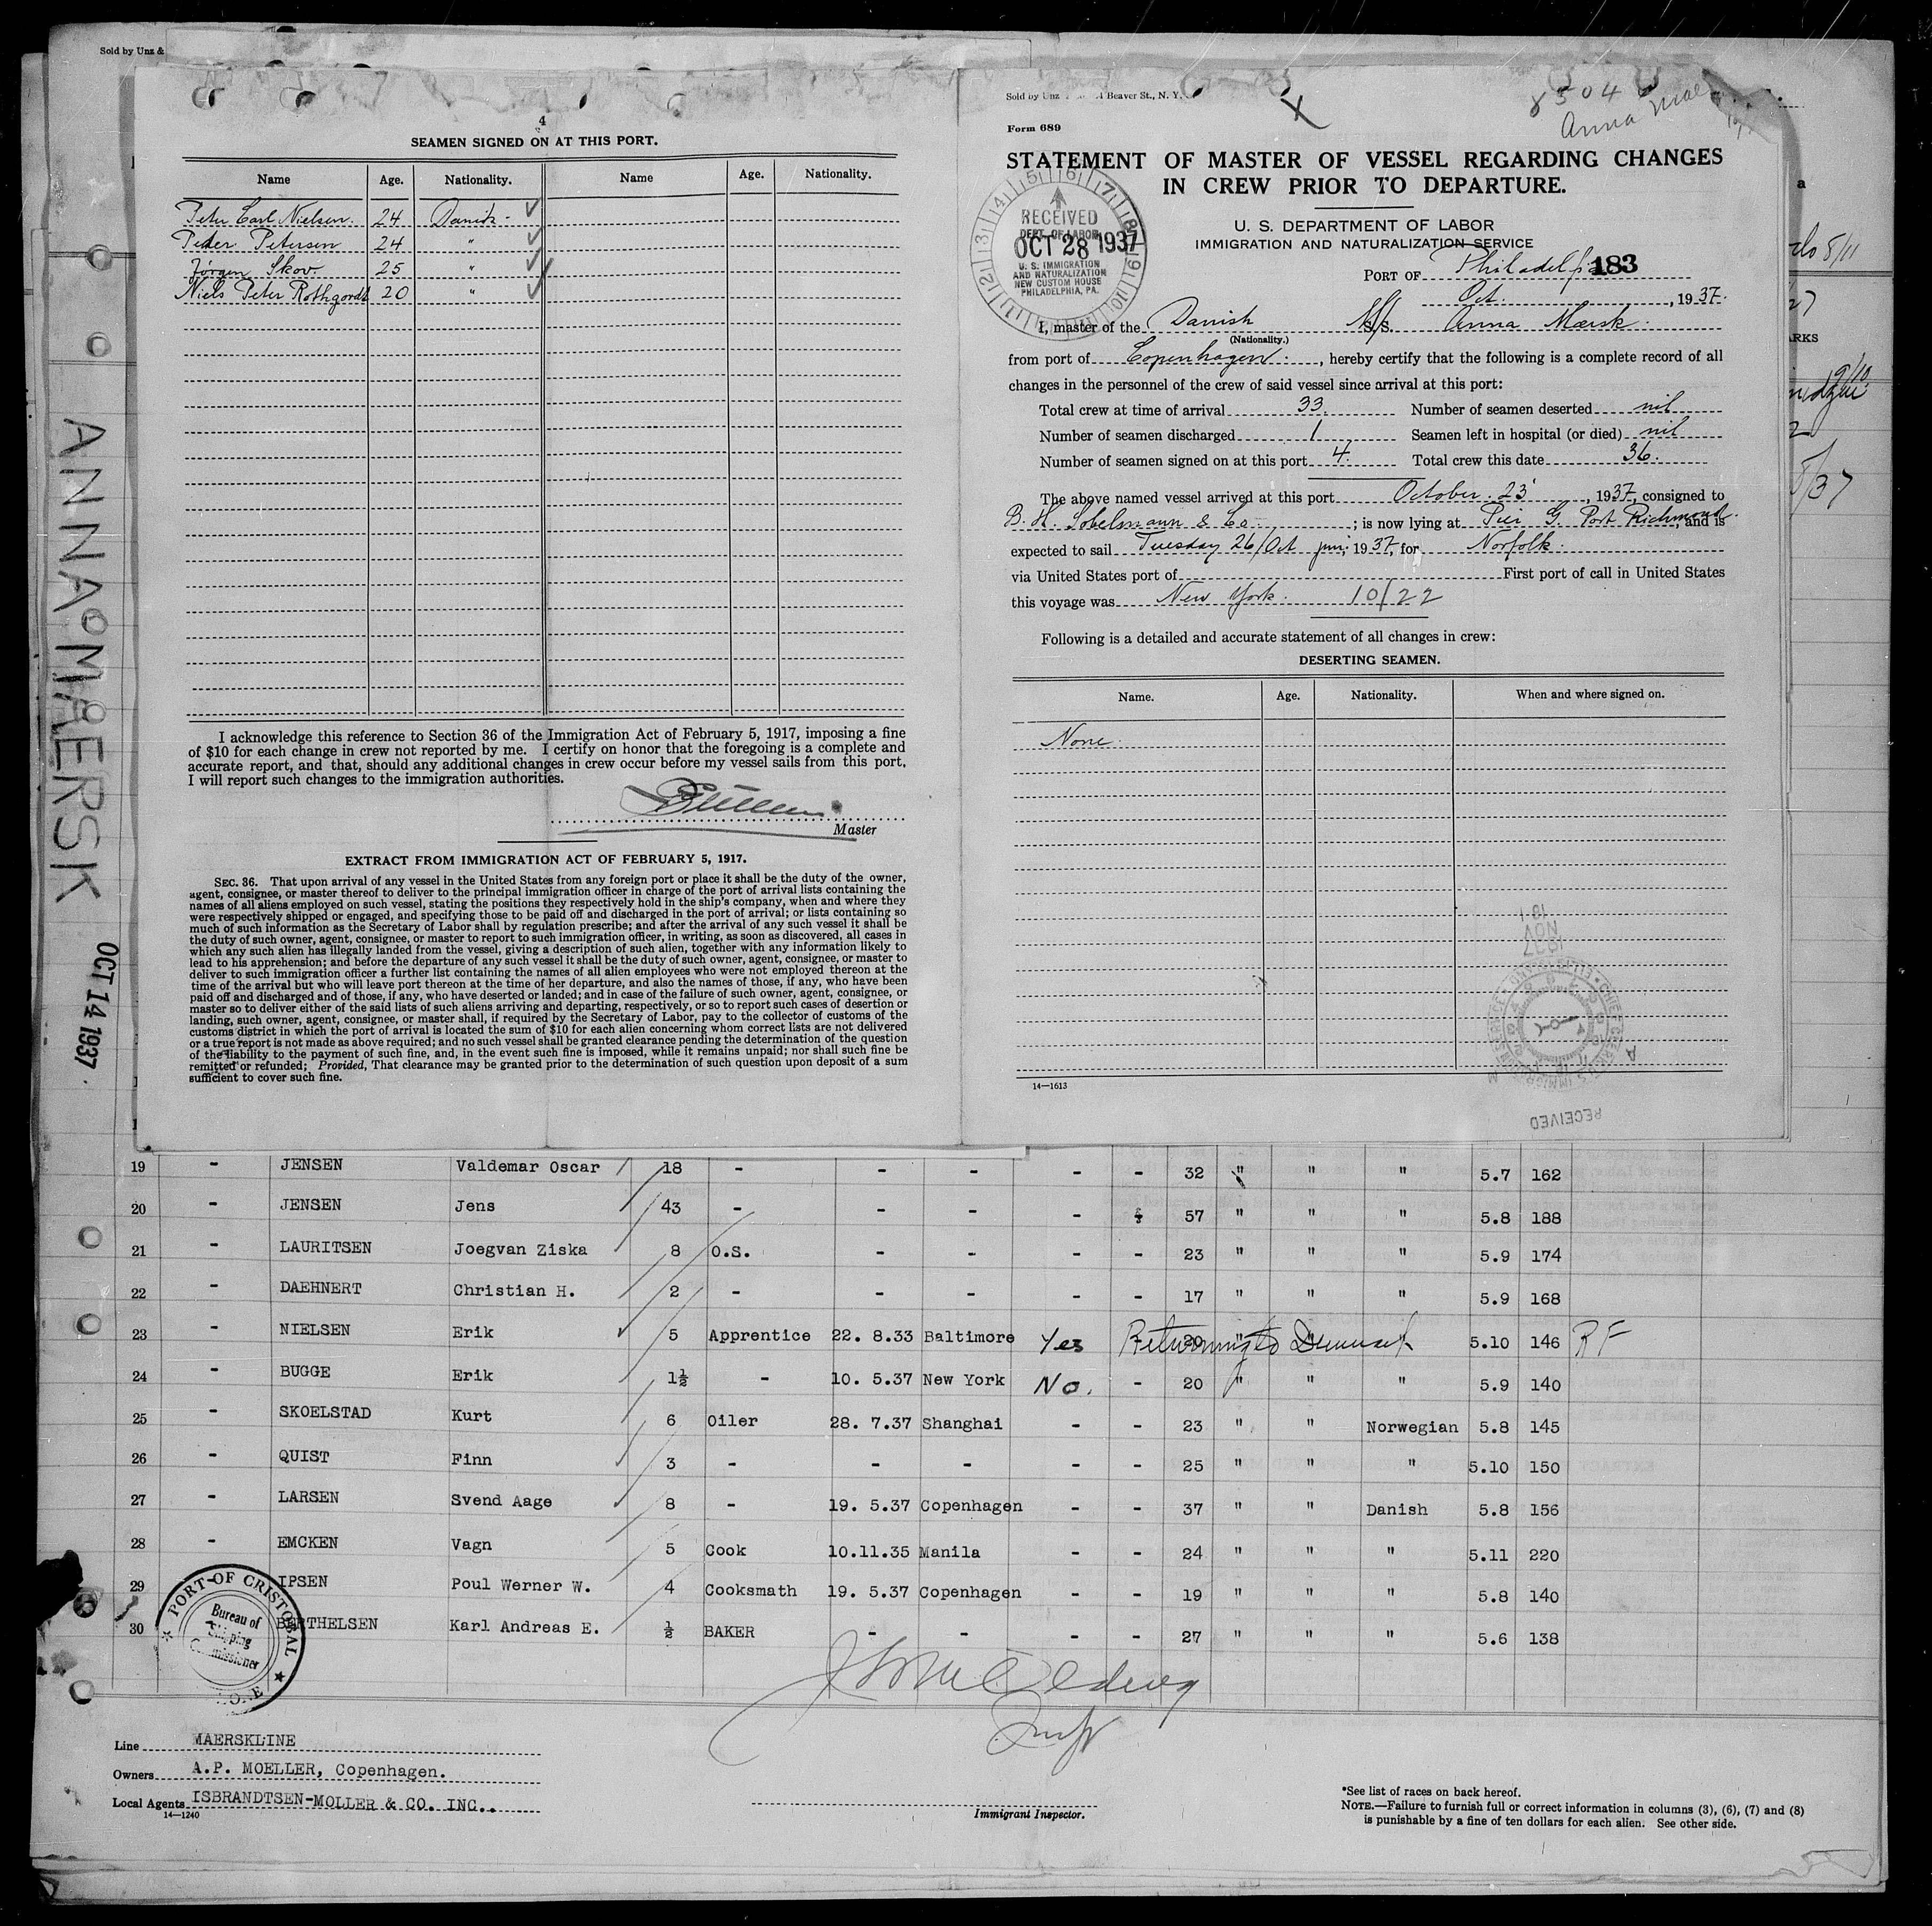 Sold by Unz &
4
SEAMEN SIGNED ON AT THIS PORT.
Name Age. Nationality. Name Age. Nationality.
Peter Carl Nielsen. 24 Danish - ✓
Peder Petersen 24 " ✓
Jørgen Skov 25 " ✓
Niels Peter Rothgordt 20 " ✓
I acknowledge this reference to Section 36 of the Immigration Act of February 5, 1917, imposing a fine
of $10 for each change in crew not reported by me. I certify on honor that the foregoing is a complete and
accurate report, and that, should any additional changes in crew occur before my vessel sails from this port,
I will report such changes to the immigration authorities.
Master
EXTRACT FROM IMMIGRATION ACT OF FEBRUARY 5, 1917.
SEC. 36. That upon arrival of any vessel in the United States from any foreign port or place it shall be the duty of the owner,
agent, consignee, or master thereof to deliver to the principal immigration officer in charge of the port of arrival lists containing the
names of all aliens employed on such vessel, stating the positions they respectively hold in the ship's company, when and where they
were respectively shipped or engaged, and specifying those to be paid off and discharged in the port of arrival; or lists containing so
much of such information as the Secretary of Labor shall by regulation prescribe; and after the arrival of any such vessel it shall be
the duty of such owner, agent, consignee, or master to report to such immigration officer, in writing, as soon as discovered, all cases in
which any such alien has illegally landed from the vessel, giving a description of such alien, together with any information likely to
lead to his apprehension; and before the departure of any such vessel it shall be the duty of such owner, agent, consignee, or master to
deliver to such immigration officer a further list containing the names of all alien employees who were not employed thereon at the
time of the arrival but who will leave port thereon at the time of her departure, and also the names of those, if any, who have been
paid off and discharged and of those, if any, who have deserted or landed; and in case of the failure of such owner, agent, consignee, or
master so to deliver either of the said lists of such aliens arriving and departing, respectively, or so to report such cases of desertion or
landing, such owner, agent, consignee, or master shall, if required by the Secretary of Labor, pay to the collector of customs of the
customs district in which the port of arrival is located the sum of $10 for each alien concerning whom correct lists are not delivered
or a true report is not made as above required; and no such vessel shall be granted clearance pending the determination of the question
of the liability to the payment of such fine, and, in the event such fine is imposed, while it remains unpaid; nor shall such fine be
remitted or refunded; Provided, That clearance may be granted prior to the determination of such question upon deposit of a sum
sufficient to cover such fine.
ANNA MAERSK
OCT 14 1937
Sold by Unz Beaver St., N. Y.
8504
Anna Mae
Form 689
STATEMENT OF MASTER OF VESSEL REGARDING CHANGES
IN CREW PRIOR TO DEPARTURE.
U. S. DEPARTMENT OF LABOR
IMMIGRATION AND NATURALIZATION SERVICE
RECEIVED
DEPT. OF LABOR
OCT 28 1937
U. S. IMMIGRATION
AND NATURALIZATION
NEW CUSTOM HOUSE
PHILADELPHIA, PA.
PORT OF Philadelfi 183
Oct. , 1937.
I, master of the Danish M/S. Anna Mærsk.
(Nationality.)
from port of Copenhagen. , hereby certify that the following is a complete record of all
changes in the personnel of the crew of said vessel since arrival at this port:
Total crew at time of arrival 33. Number of seamen deserted nil
Number of seamen discharged 1 Seamen left in hospital (or died) nil
Number of seamen signed on at this port 4. Total crew this date 36.
The above named vessel arrived at this port October. 23 , 1937, consigned to
B. H. Sobelmann & Co ; is now lying at Pier G. Port Richmond. , and is
expected to sail Tuesday 26/Oct pm, 1937, for Norfolk.
via United States port of First port of call in United States
this voyage was New York. 10/22
Following is a detailed and accurate statement of all changes in crew:
DESERTING SEAMEN.
Name. Age. Nationality. When and where signed on.
None.
1937
NOV
RECEIVED
14—1613
a
8/11
RKS
9/10
2
19 - JENSEN Valdemar Oscar 18 - - - - - 32 " " " 5.7 162
20 - JENSEN Jens 43 - - - - 57 " " " 5.8 188
21 - LAURITSEN Joegvan Ziska 8 O.S. - - - - 23 " " " 5.9 174
22 - DAEHNERT Christian H. 2 - - - - - 17 " " " 5.9 168
23 - NIELSEN Erik 5 Apprentice 22. 8.33 Baltimore Yes - 20 " " " Returning to Denmark 5.10 146 RF
24 - BUGGE Erik 1½ - 10. 5.37 New York No. - 20 " " " 5.9 140
25 - SKOELSTAD Kurt 6 Oiler 28. 7.37 Shanghai - - 23 " " Norwegian 5.8 145
26 - QUIST Finn 3 - - - - - 25 " " " 5.10 150
27 - LARSEN Svend Aage 8 - 19. 5.37 Copenhagen - - 37 " " Danish 5.8 156
28 - EMCKEN Vagn 5 Cook 10.11.35 Manila - - 24 " " " 5.11 220
29 - IPSEN Poul Werner W. 4 Cooksmath 19. 5.37 Copenhagen - - 19 " " " 5.8 140
30 BERTHELSEN Karl Andreas E. ½ BAKER - - - - 27 " " " 5.6 138
PORT OF CRISTOBAL
Bureau of
Shipping
Commissioner
Line MAERSKLINE
Owners A.P. MOELLER, Copenhagen.
Local Agents ISBRANDTSEN-MOLLER & CO. INC..
14—1240
Immigrant Inspector.
*See list of races on back hereof.
NOTE.—Failure to furnish full or correct information in columns (3), (6), (7) and (8)
is punishable by a fine of ten dollars for each alien. See other side.